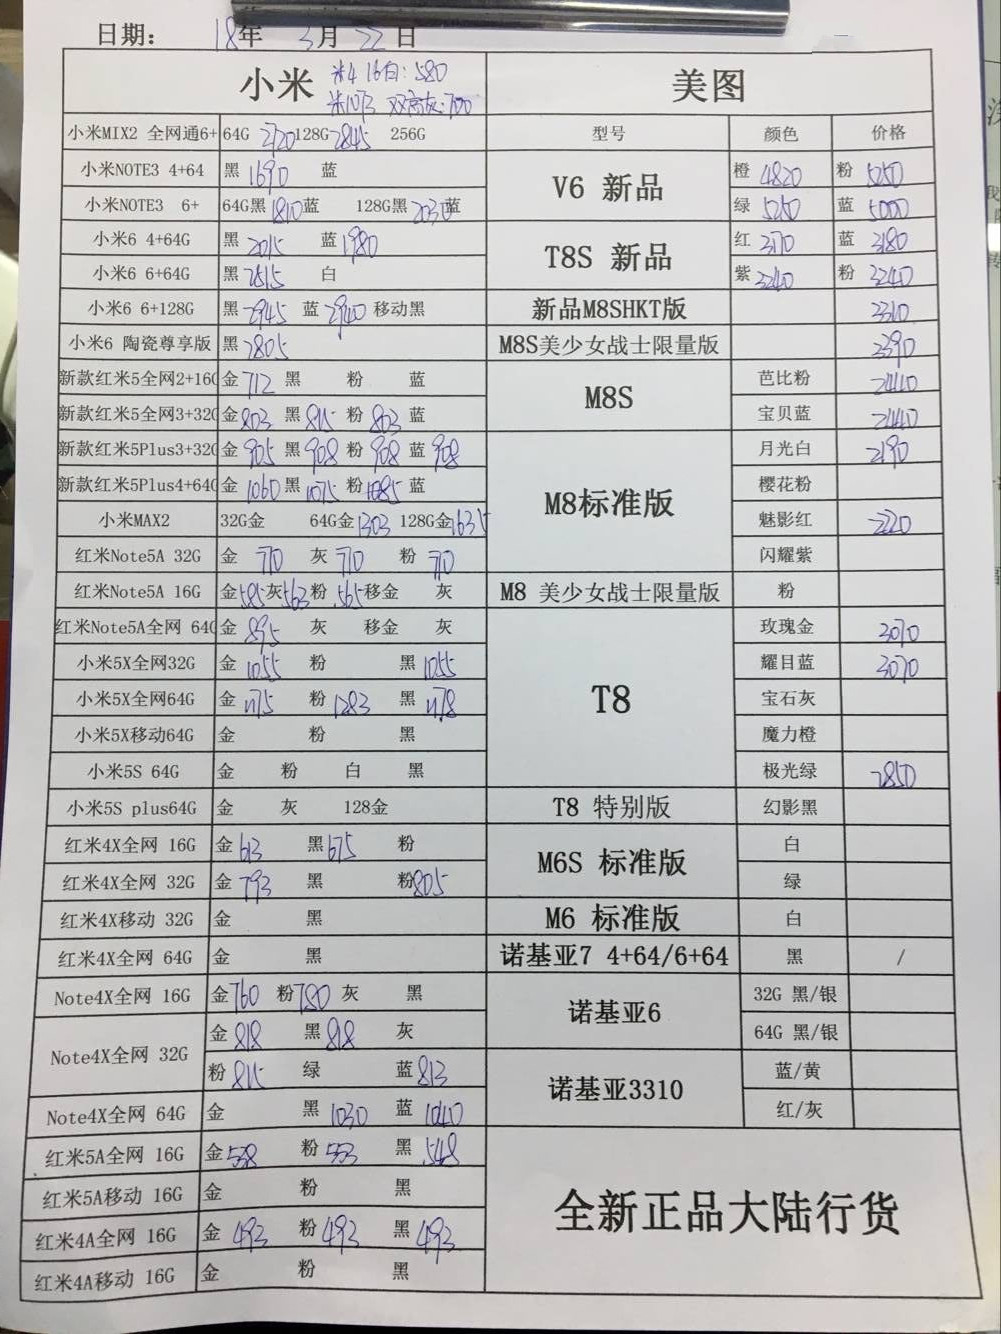 日期： 18年 3月 22日
小米 米4 16白：580
美图
小米MIX2 全网通6+ 64G 2720 128G 2845 256G
型号 颜色 价格
小米NOTE3 4+64 黑 1690 蓝
V6 新品 橙 4820 粉 5250
小米NOTE3 6+ 64G黑 1810 蓝 128G黑 2030 蓝
绿 5250 蓝 5000
小米6 4+64G 黑 2015 蓝 1980
T8S 新品 红 3170 蓝 3180
小米6 6+64G 黑 2515 白
紫 3240 粉 3240
小米6 6+128G 黑 2945 蓝 2940 移动黑
新品M8SHKT版 2310
小米6 陶瓷尊享版 黑 2805
M8S美少女战士限量版 2390
新款红米5全网2+16G 金 712 黑 粉 蓝
M8S 芭比粉 2440
新款红米5全网3+32G 金 803 黑 815 粉 803 蓝
宝贝蓝 2440
新款红米5Plus3+32G 金 905 黑 908 粉 908 蓝 908
M8标准版 月光白 2190
新款红米5Plus4+64G 金 1060 黑 1075 粉 1085 蓝
樱花粉
小米MAX2 32G金 64G金 1303 128G金 1635
魅影红 2220
红米Note5A 32G 金 710 灰 710 粉 710
闪耀紫
红米Note5A 16G 金 585 灰 563 粉 565 移金 灰
M8 美少女战士限量版 粉
红米Note5A全网 64G 金 895 灰 移金 灰
T8 玫瑰金 3070
小米5X全网32G 金 1055 粉 黑 1055
耀目蓝 3070
小米5X全网64G 金 1175 粉 1283 黑 1178
宝石灰
小米5X移动64G 金 粉 黑
魔力橙
小米5S 64G 金 粉 白 黑
极光绿 2850
小米5S plus64G 金 灰 128金
T8 特别版 幻影黑
红米4X全网 16G 金 613 黑 675 粉
M6S 标准版 白
红米4X全网 32G 金 793 黑 粉 805
绿
红米4X移动 32G 金 黑
M6 标准版 白
红米4X全网 64G 金 黑
诺基亚7 4+64/6+64 黑 /
Note4X全网 16G 金 760 粉 780 灰 黑
诺基亚6 32G 黑/银
Note4X全网 32G 金 818 黑 818 灰
64G 黑/银
粉 815 绿 蓝 813
诺基亚3310 蓝/黄
Note4X全网 64G 金 黑 1030 蓝 1040
红/灰
红米5A全网 16G 金 558 粉 553 黑 548
红米5A移动 16G 金 粉 黑
全新正品大陆行货
红米4A全网 16G 金 493 粉 493 黑 493
红米4A移动 16G 金 粉 黑